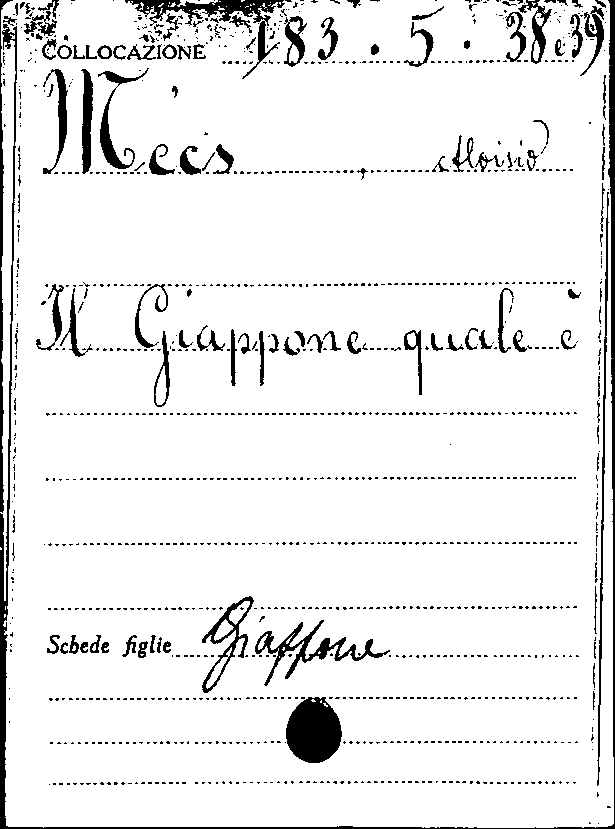 COLLOCAZIONE 183.5.38 e 39
Mécs, Aloisio
Il Giappone quale è
Schede figlie Giappone